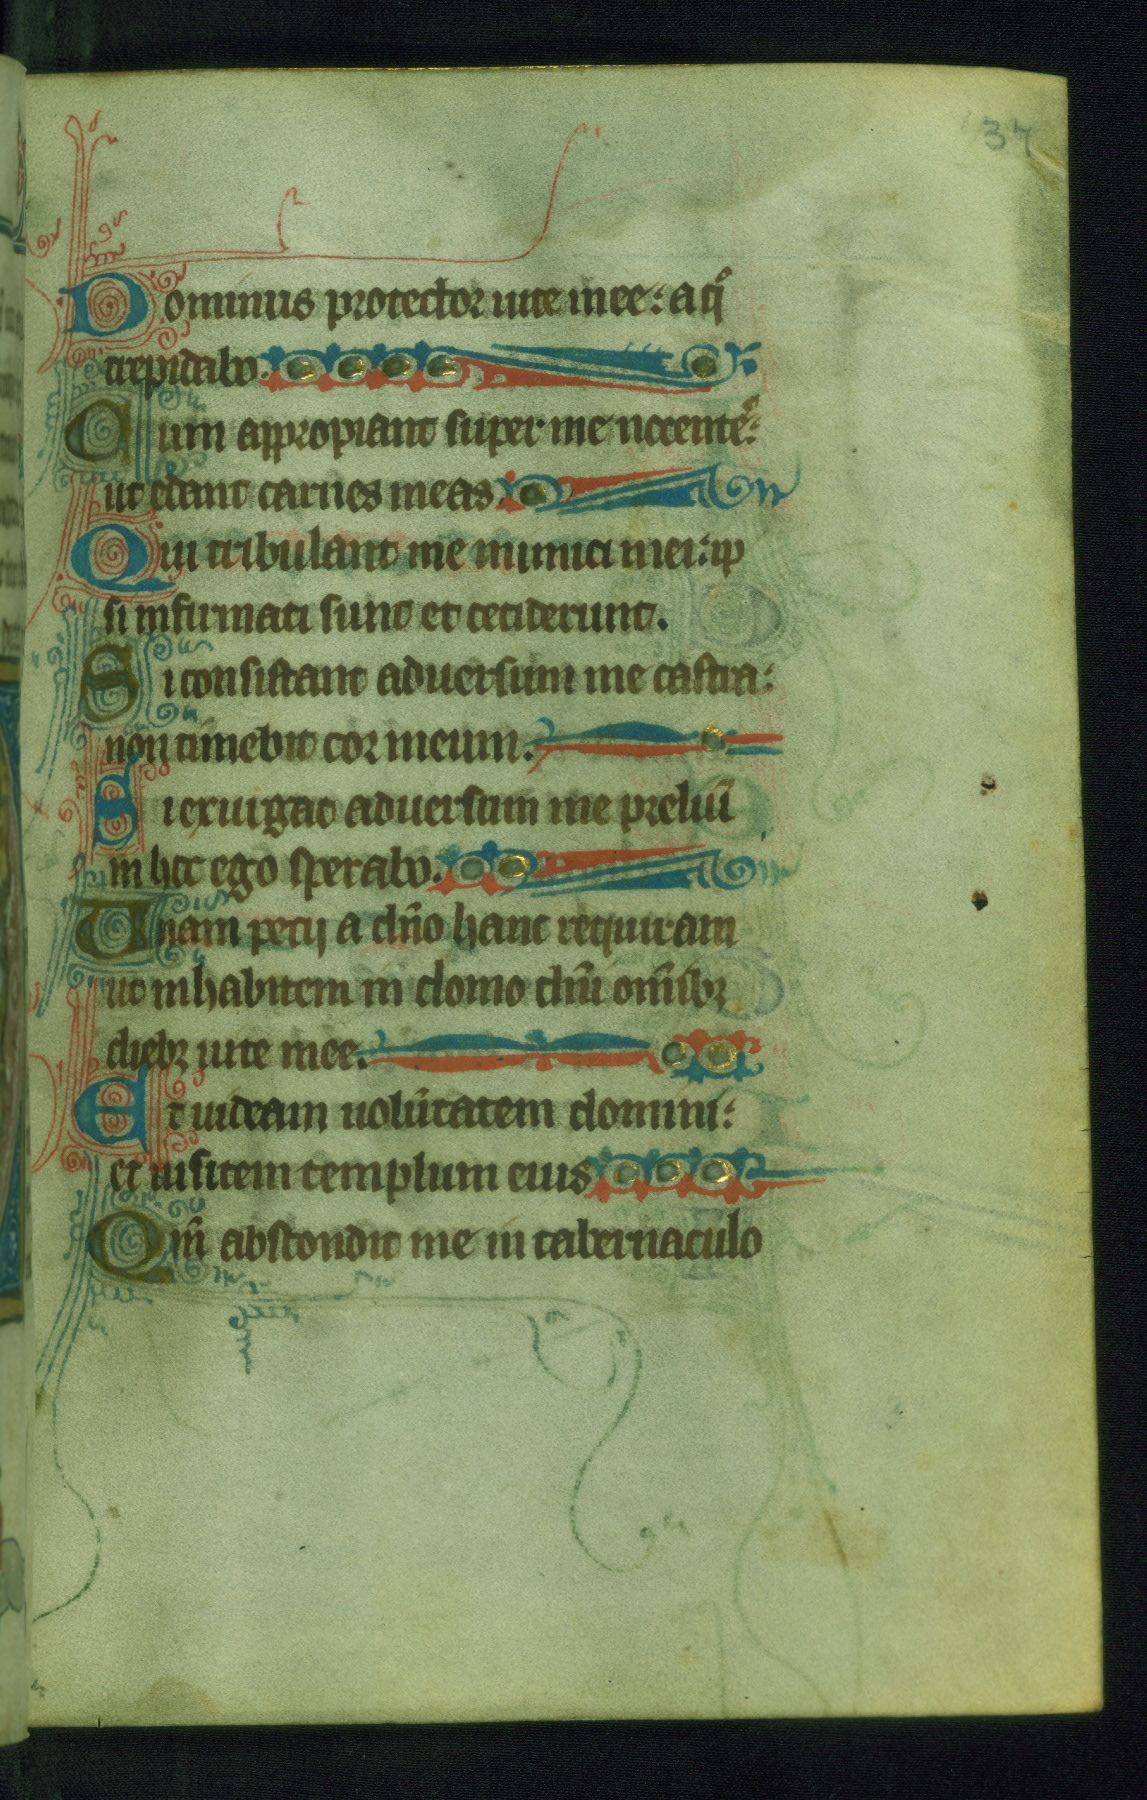 37
Dominus protector uite mee: a q̊
trepidabo.
Cum appropiant super me nocente᷒:
ut edant carnes meas.
Qui tribulant me inimici mei: ip
si infirmati sunt et ceciderunt.
Si consistant aduersum me castra:
non timebit cor meum.
Si exurgat aduersum me preliū
in hoc ego sperabo.
Unam pecij a dn̄o hanc requiram
ut inhabitem in domo dn̄i om̄ibꝫ
diebꝫ uite mee.
Et uideam uolūtatem domini:
et uisitem templum eius
Qm̄ abscondit me in tabernaculo